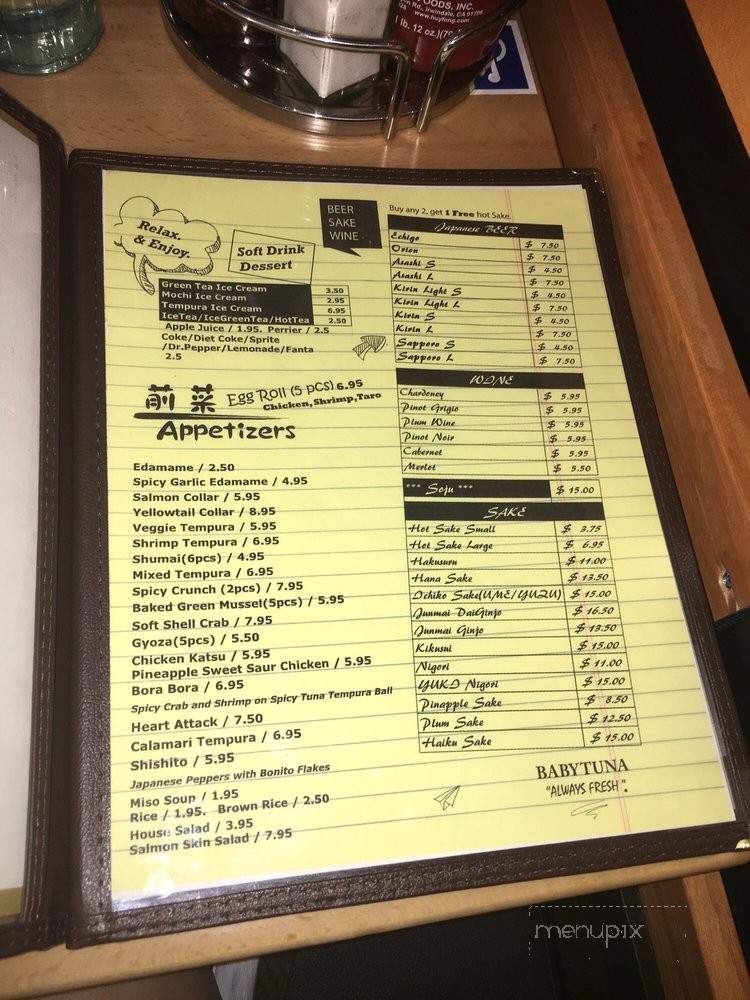 FOODS, INC.
Rd., Irwindale, CA 91706
www.huyfong.com
1 lb. 12 oz.)(79
Relax.
& Enjoy.
Soft Drink
Dessert
BEER
SAKE
WINE
Buy any 2, get 1 Free hot Sake.
Green Tea Ice Cream 3.50
Mochi Ice Cream 2.95
Tempura Ice Cream 6.95
IceTea/IceGreenTea/HotTea 2.50
Apple Juice / 1.95. Perrier / 2.5
Coke/Diet Coke/Sprite
/Dr.Pepper/Lemonade/Fanta
2.5
前 菜 Egg Roll (5 pcs) 6.95
Chicken,Shrimp,Taro
Appetizers
Edamame / 2.50
Spicy Garlic Edamame / 4.95
Salmon Collar / 5.95
Yellowtail Collar / 8.95
Veggie Tempura / 5.95
Shrimp Tempura / 6.95
Shumai(6pcs) / 4.95
Mixed Tempura / 6.95
Spicy Crunch (2pcs) / 7.95
Baked Green Mussel(5pcs) / 5.95
Soft Shell Crab / 7.95
Gyoza(5pcs) / 5.50
Chicken Katsu / 5.95
Pineapple Sweet Saur Chicken / 5.95
Bora Bora / 6.95
Spicy Crab and Shrimp on Spicy Tuna Tempura Ball
Heart Attack / 7.50
Calamari Tempura / 6.95
Shishito / 5.95
Japanese Peppers with Bonito Flakes
Miso Soup / 1.95
Rice / 1.95. Brown Rice / 2.50
House Salad / 3.95
Salmon Skin Salad / 7.95
Japanese BEER
Echigo $ 7.50
Orion $ 7.50
Asashi S $ 4.50
Asashi L $ 7.50
Kirin Light S $ 4.50
Kirin Light L $ 7.50
Kirin S $ 4.50
Kirin L $ 7.50
Sapporo S $ 4.50
Sapporo L $ 7.50
WINE
Chardoney $ 5.95
Pinot Grigio $ 5.95
Plum Wine $ 5.95
Pinot Noir $ 5.95
Cabernet $ 5.95
Merlot $ 5.50
*** Soju *** $ 15.00
SAKE
Hot Sake Small $ 3.75
Hot Sake Large $ 6.95
Hakusuru $ 11.00
Hana Sake $ 13.50
Ichiko Sake(UME/YUZU) $ 15.00
Junmai DaiGinjo $ 16.50
Junmai Ginjo $ 13.50
Kikusui $ 15.00
Nigori $ 11.00
YUKI Nigori $ 15.00
Pinapple Sake $ 8.50
Plum Sake $ 12.50
Haiku Sake $ 15.00
BABYTUNA
"ALWAYS FRESH".
menupix